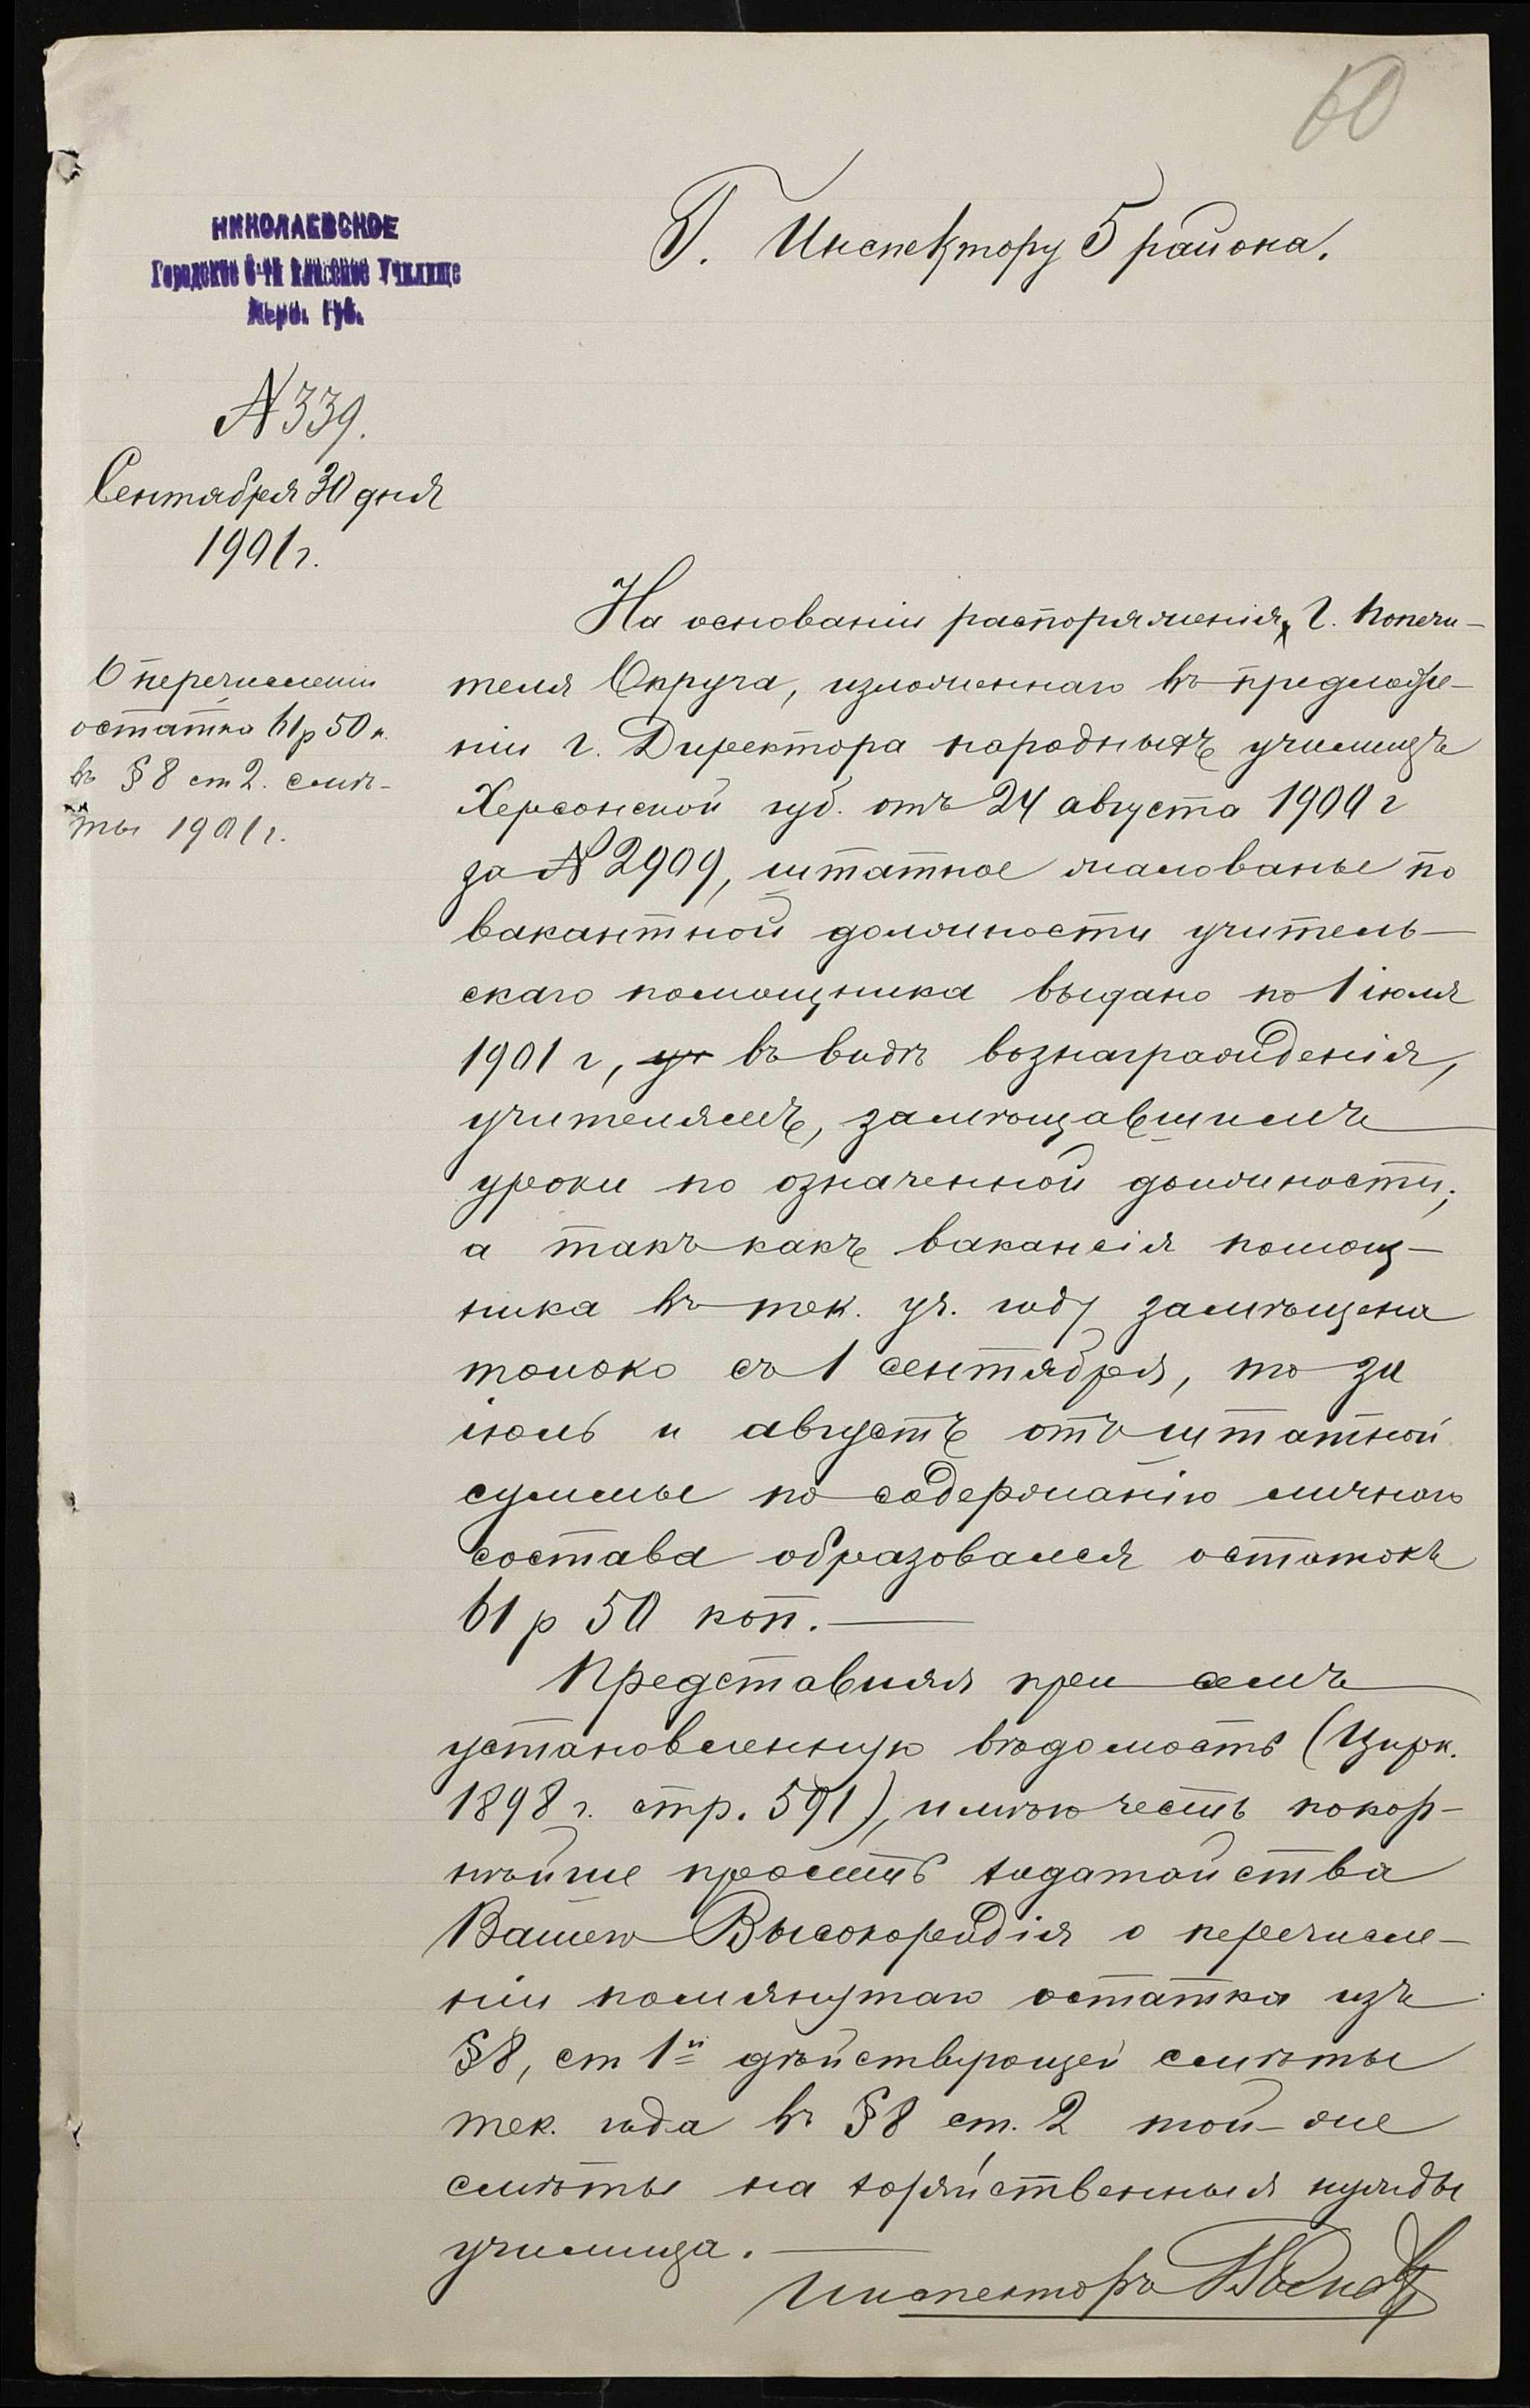 60
НИКОЛАЕВСКОЕ
Городское 6-ти классное Училище
Херс. губ.
Г. Инспектору 5 района.
№ 339.
Сентября 30 дня
1901 г.
О перечислении
остатка 61 р 50 к.
въ § 8 ст 2. смѣ-
ты 1901 г.
На основаніи распоряженія, Г. Попечи-
теля Округа, изложеннаго въ предложе-
ніи г. Директора народныхъ училищъ
Херсонской губ. отъ 24 августа 1900 г
за № 2909, штатное жалованье по
вакантной должности учитель-
скаго помощника выдано по 1 іюля
1901 г, въ видѣ вознагражденія,
учителямъ, замѣщавшимъ
уроки по означенной должности;
а такъ какъ вакансія помощ-
ника въ тек. уч. году замѣщена
только съ 1 сентября, то за
іюль и августъ отъ штатной
суммы по содержанію личного
состава образовался остатокъ
61 р 50 коп.
Представляя при семъ
установленную вѣдомость (Цирк.
1898 г. стр. 591), имѣю честь покор-
нѣйше просить ходатайства
Вашего Высокородія о перечисле-
ніи помянутаго остатка изъ
§ 8, ст 1й дѣйствующей смѣты
тек. года въ § 8 ст. 2 той-же
смѣты на хозяйственныя нужды
училища.
Инспекторъ